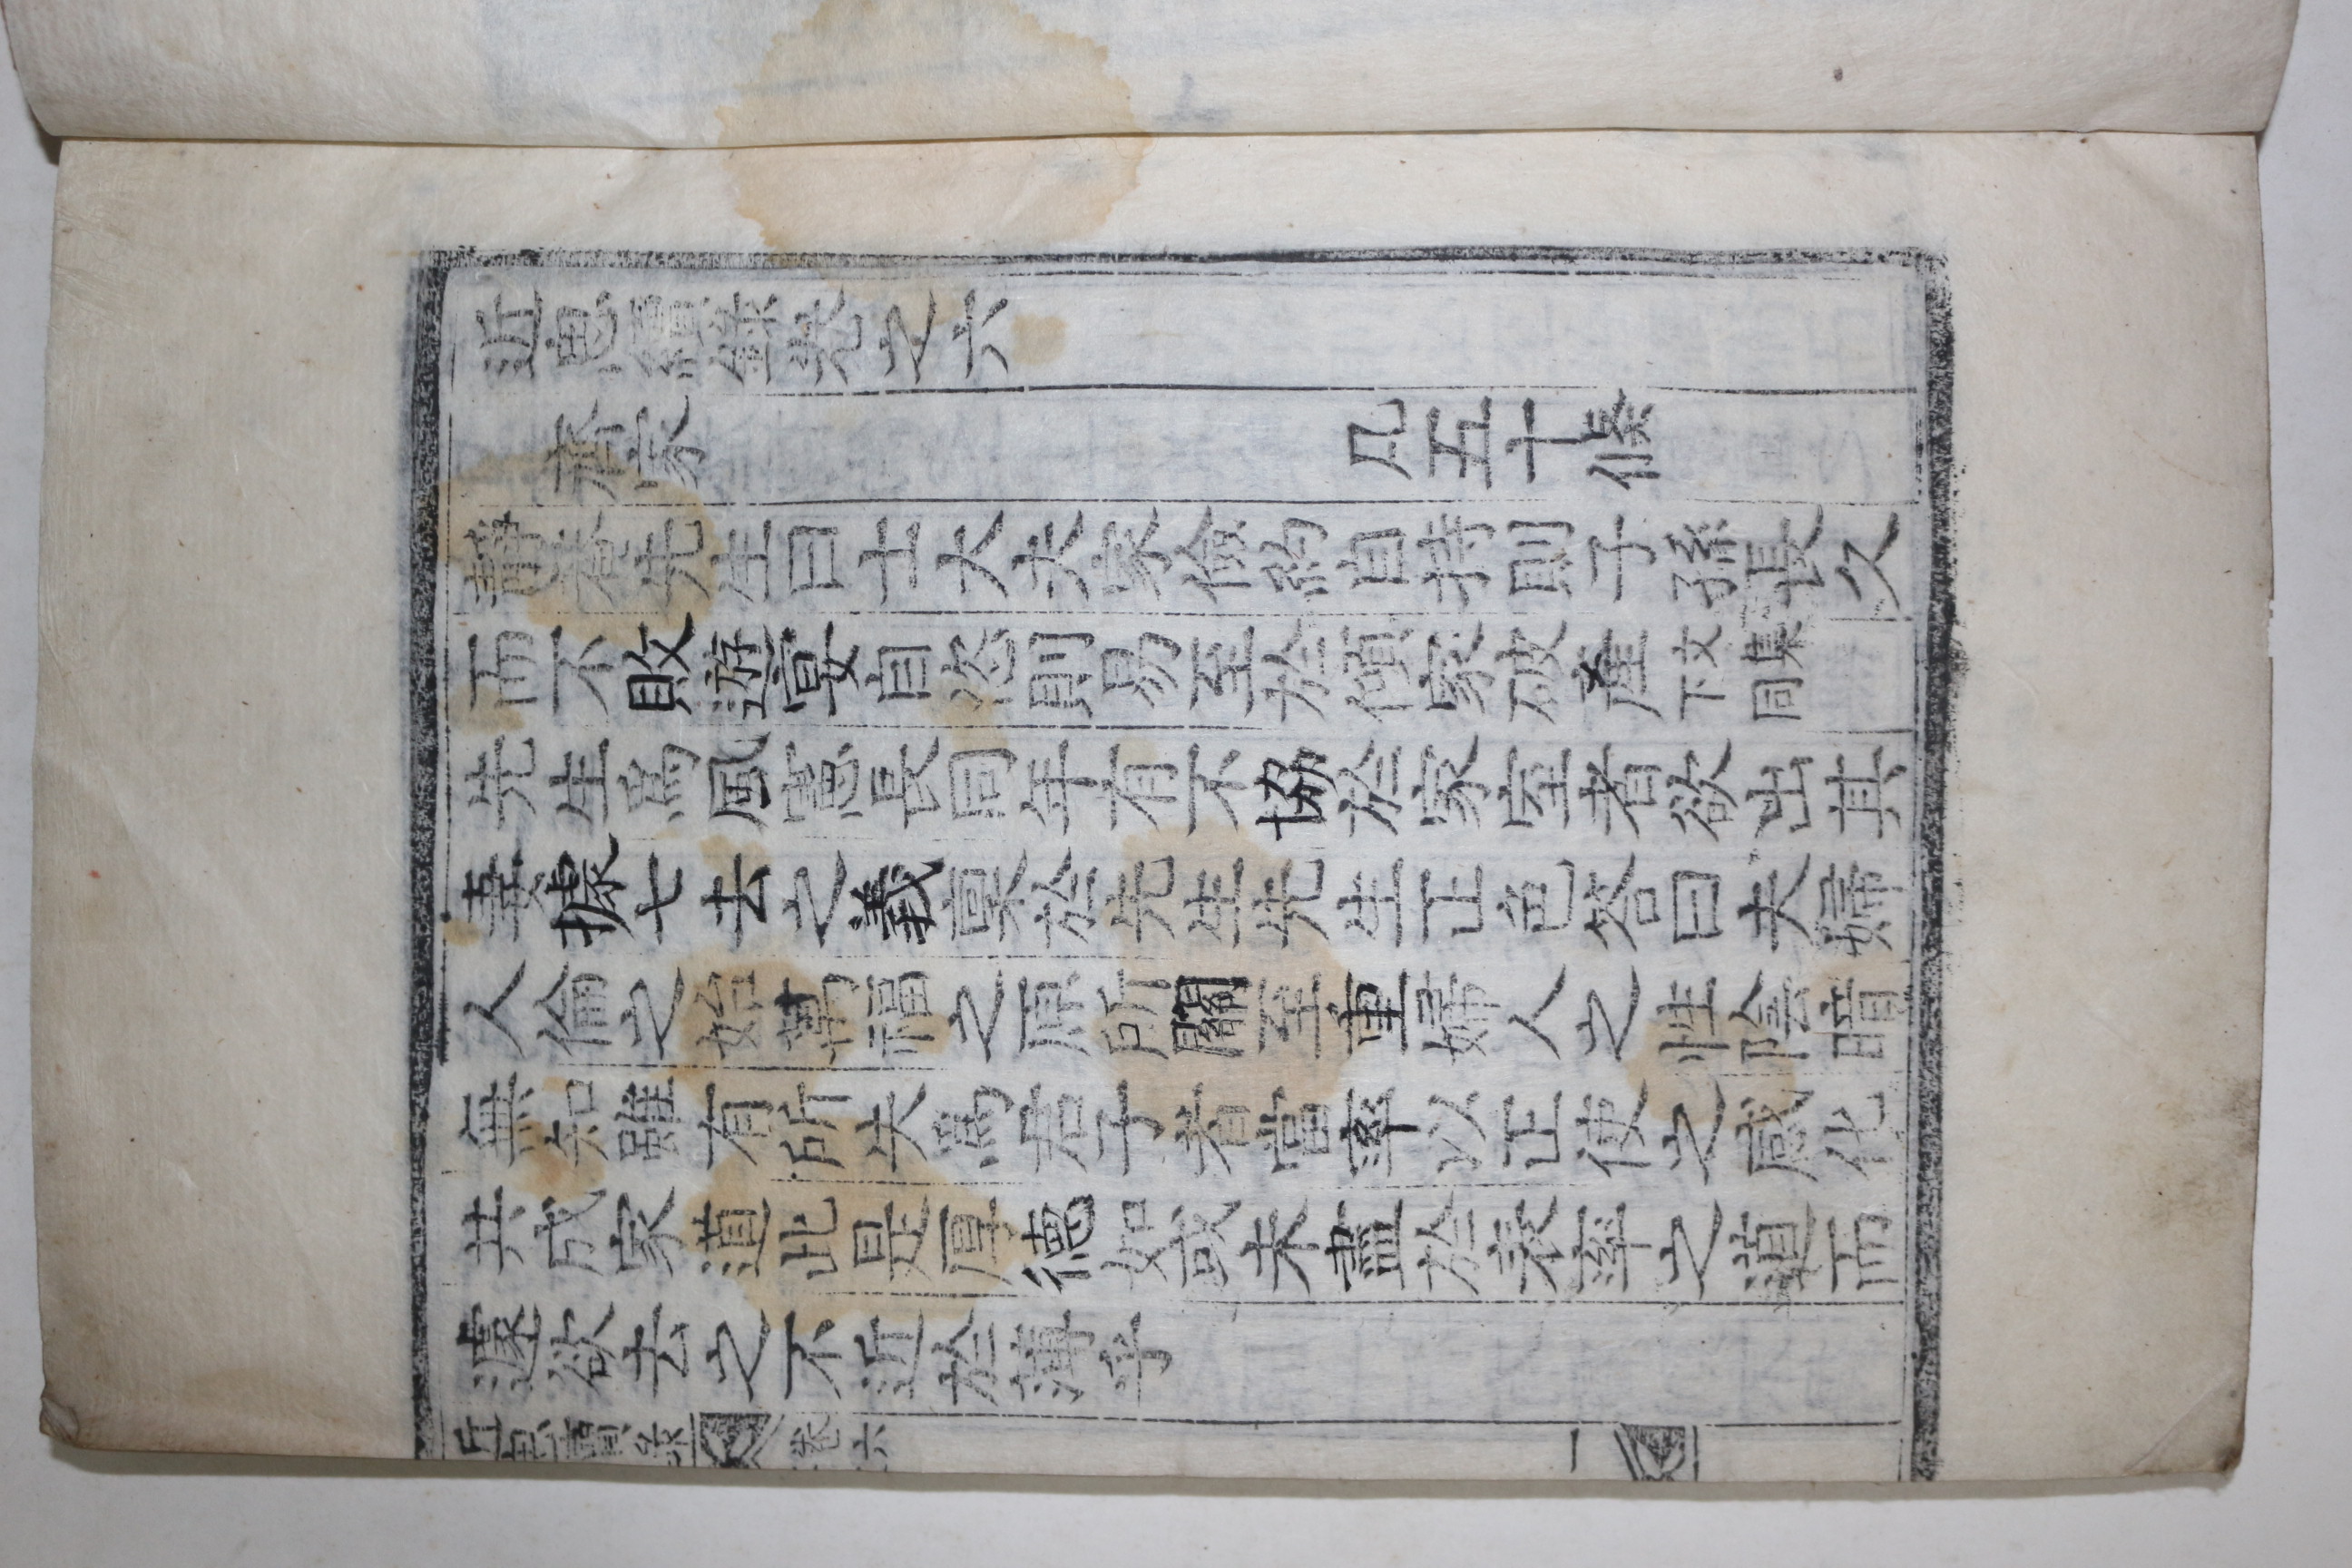 近思續錄卷之六
居家 凡五十條
靜菴先生曰士大夫家儉約自持則子孫長久
而不敗遊宴自恣則易至於傾家破産 文集下同
先生爲風憲長同年有不協於家室者欲出其
妻據七去之義稟於先生先生正色答曰夫婦
人倫之始萬福之原所關至重婦人之性陰暗
無知雖有所失爲君子者當率以正使之感化
共成家道此是厚德如或未盡於表率之道而
遽欲去之不近於薄乎
近思續錄 卷六 一